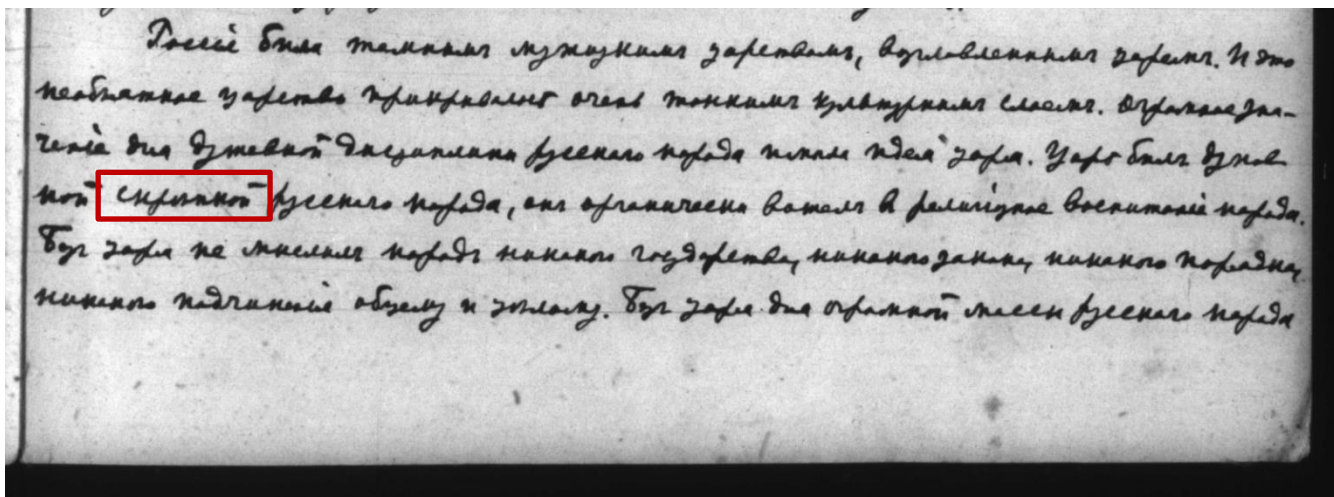 Россія была темнымъ мужицкимъ царствомъ, возглавленнымъ царемъ. И это
необъятное царство прикрывалось очень тонкимъ культурнымъ слоемъ. Огромное зна-
ченіе для душевной дисциплины русскаго народа имѣла идея царя. Царь былъ духов-
ной скрѣпкой русскаго народа, онъ органически вошелъ в религіозное воспитаніе народа.
Безъ царя не мыслилъ народъ никакого государства, никакого закона, никакого порядка,
никакого подчиненія общему и цѣлому. Безъ царя для огромной массы русскаго народа